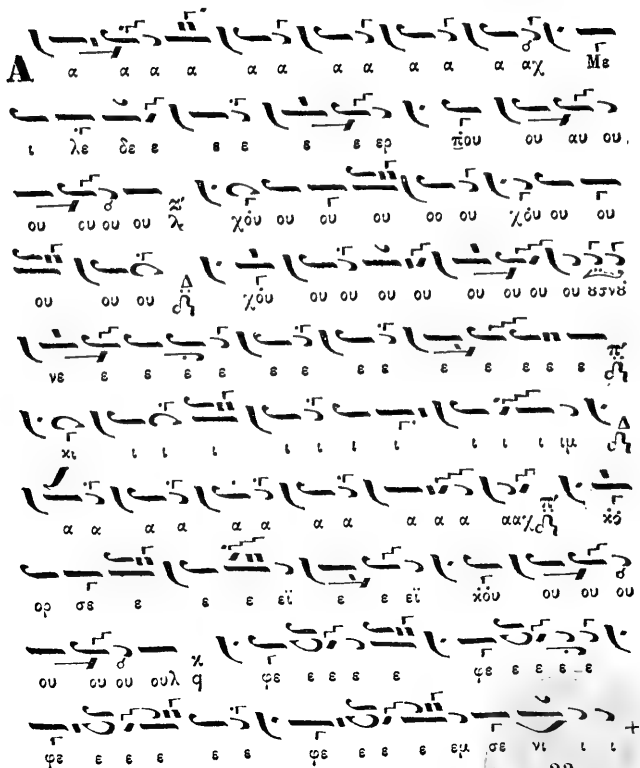 Α α α α α α α α α α α α αχ Με
ι λε δε ε ε ε ε ε ερ που ου αυ ου
ου ου ου ου λ χου ου ου ου οο ου χου ου ου
ου ου ου Δ χου ου ου ου ου ου ου ου ου
νε ε ε ε ε ε ε ε ε ε ε ε π
κι ι ι ι ι ι ι ι ι ι ι ιμ Δ
α α α α α α α α α α α ααχ π
ορ σε ε ε ε εϊ ε ε εϊ κου ου ου ου
ου ου ου ουλ κ q φε ε ε ε ε φε ε ε ε ε
φε ε ε ε ε ε φε ε ε ε εμ σε νι ι ι